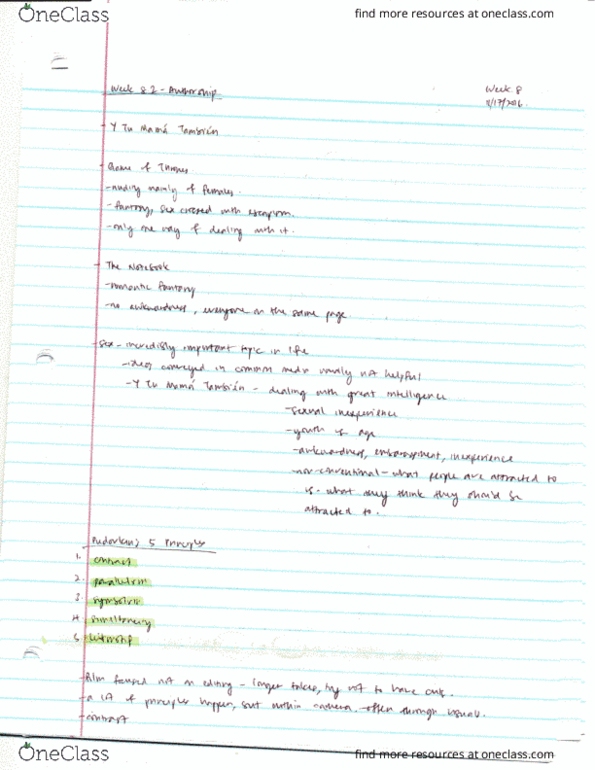 OneClass
find more resources at oneclass.com
Week 8 2 - Authorship
Week 8
Y Tu Mamá También
Game of Thrones
- nudity mainly of females.
- fantasy, sex crossed with escapism.
- only one way of dealing with it.
The Notebook
- romantic fantasy
- no awkwardness, everyone on the same page
Sex - incredibly important topic in life
- ideas conveyed in common media usually not helpful
- Y Tu Mamá También - dealing with great intelligence
- sexual inexperience
- youth of age
- awkwardness, embarrassment, inexperience
- non-conventional - what people are attracted to
is - what they think they should be
attracted to.
Pudovkin's 5 Principles
1. contrast
2. parallelism
3. symbolism
4. simultaneity
5. leitmotif
- film focused not on editing - longer takes, try not to have cuts.
- a lot of principles happen, but within camera. - often through visuals.
- contrast
OneClass
find more resources at oneclass.com